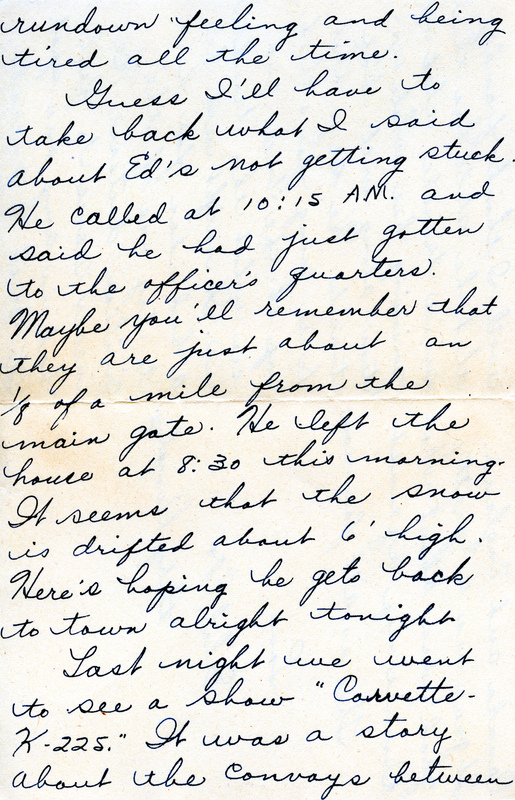 rundown feeling and being
tired all the time.
Guess I'll have to
take back what I said
about Ed's not getting stuck.
He called at 10:15 AM. and
said he had just gotten
to the officer's quarters.
Maybe you'll remember that
they are just about an
1/8 of a mile from the
main gate. He left the
house at 8:30 this morning.
It seems that the snow
is drifted about 6' high.
Here's hoping he gets back
to town alright tonight
Last night we went
to see a show "Corvette-
K-225." It was a story
about the convoys between